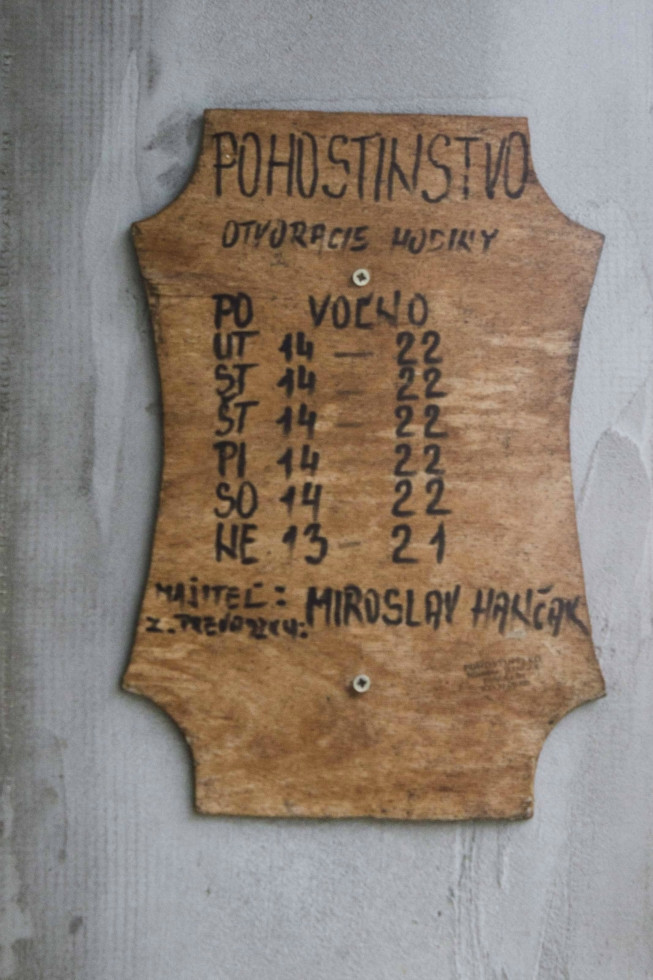 POHOSTINSTVO
OTVORACIE HODINY
PO VOĽNO
UT 14 — 22
ST 14 — 22
ŠT 14 — 22
PI 14 22
SO 14 22
NE 13 - 21
MAJITEĽ: MIROSLAV HANČAK
Z.